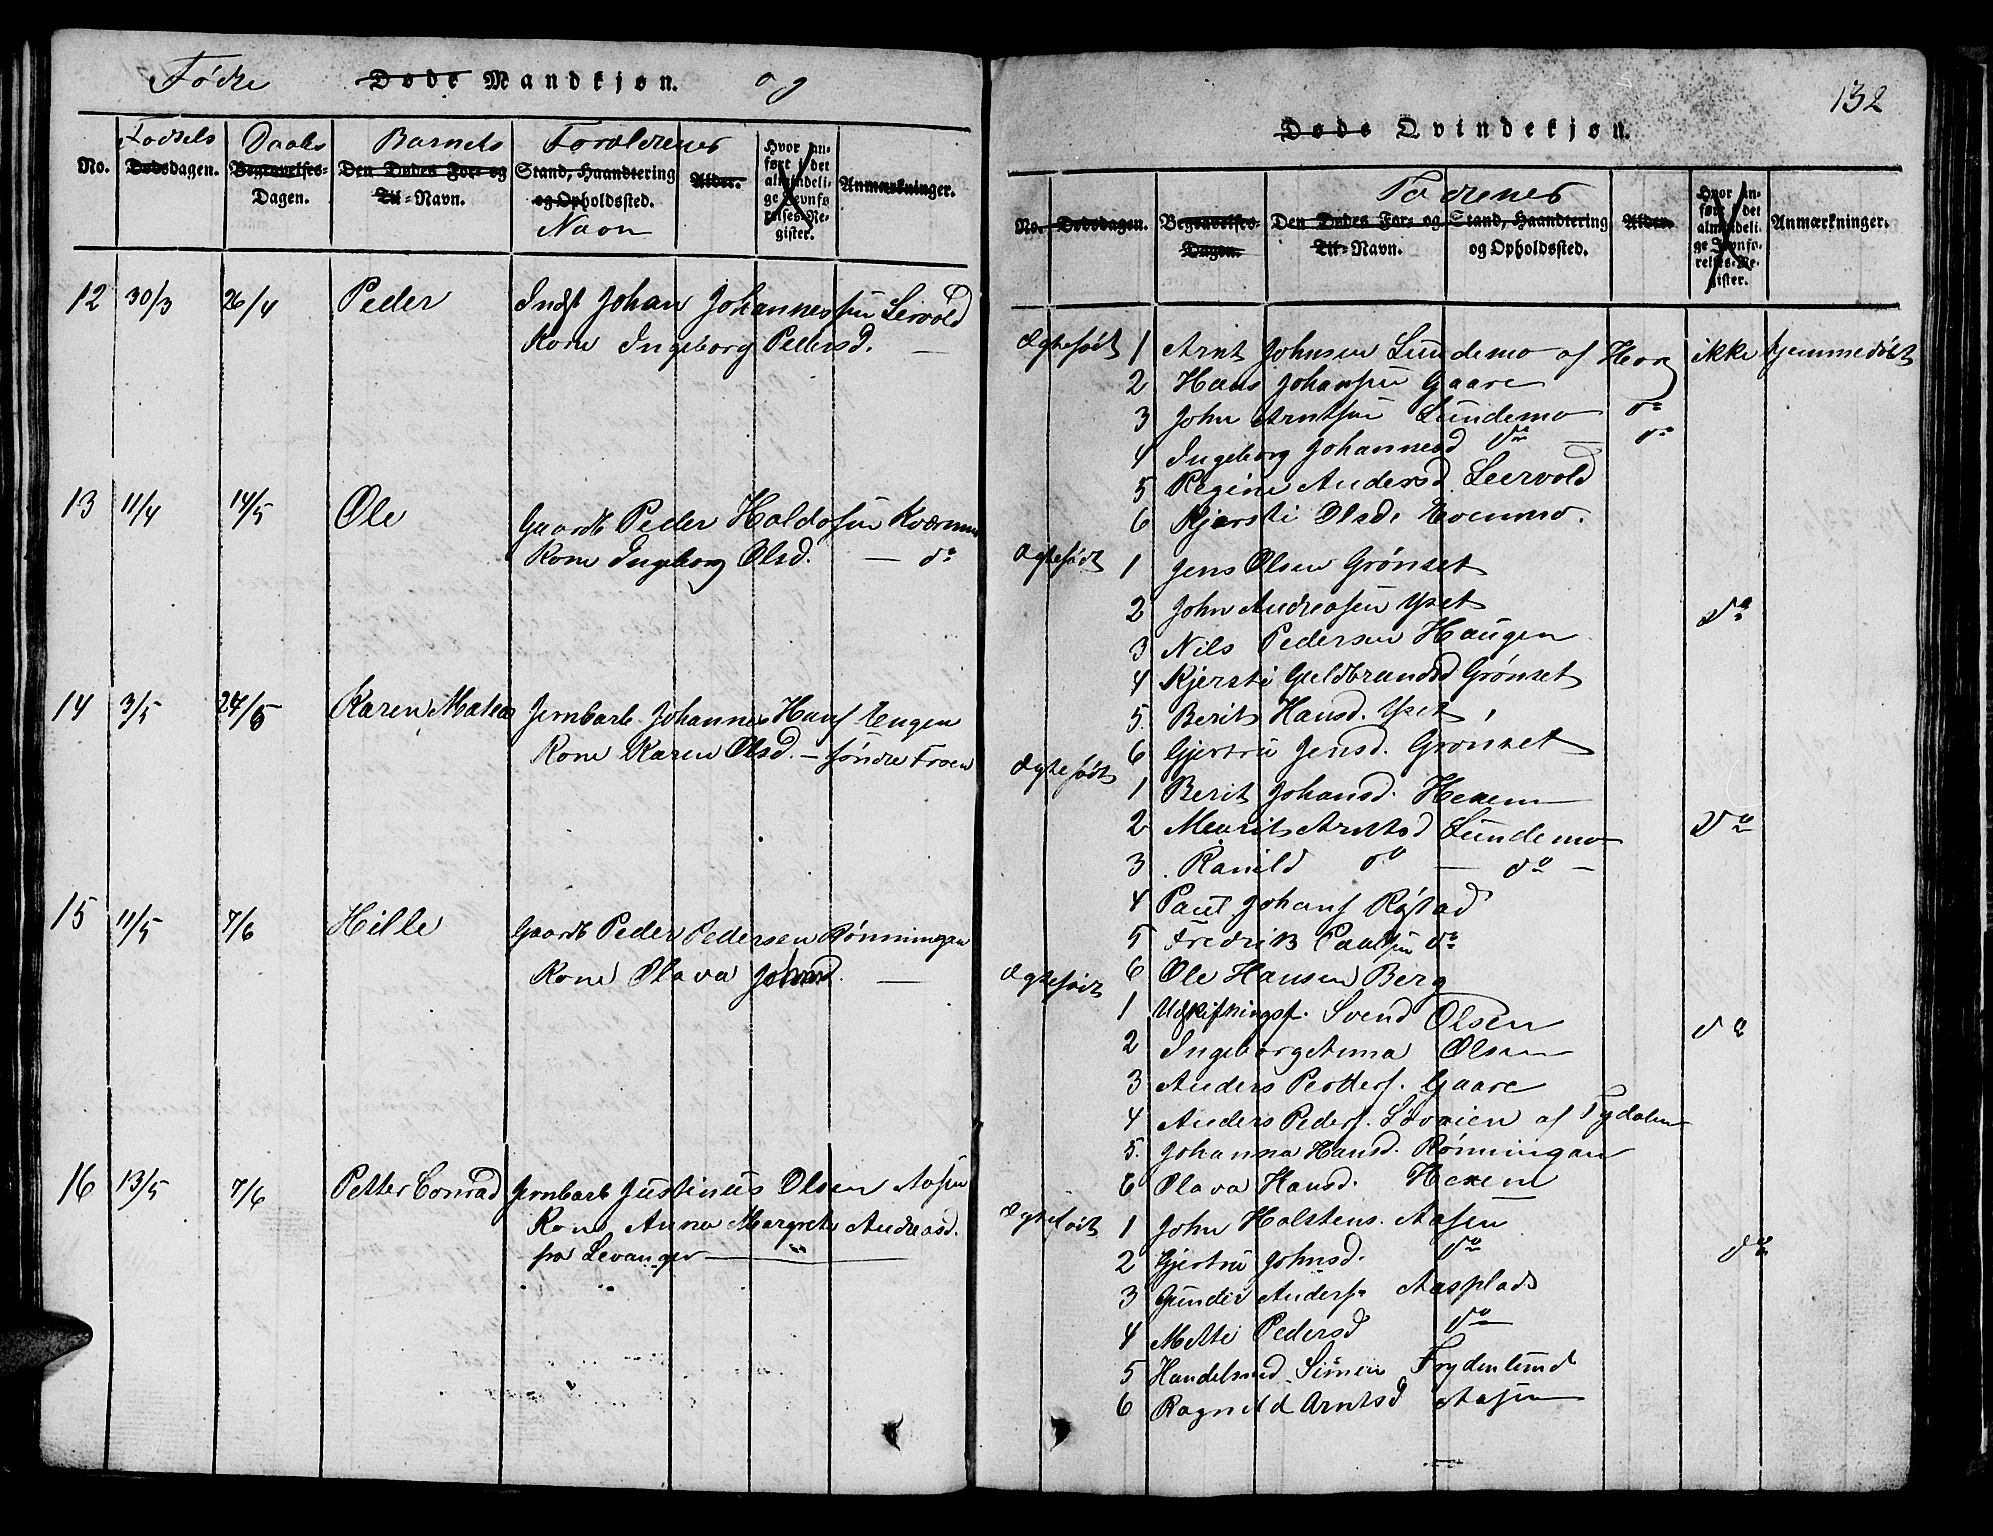 Fødte Døde Mandkjøn. og
No.
Fødsels
Dødsdagen.
Daabs
Begravelses-
Dagen.
Barnets
Den Dødes For- og
Til-Navn.
Forældrenes
Stand, Haandtering
og Opholdssted.
Navn
Alder.
Hvor an-
ført i det
almindeli-
ge Jevnfø
relses-Re-
gister.
Anmærkninger.
12 30/3 26/4 Peder Indst Johan Johannessen Leervold
Kone Ingeborg Pedersd. —
13 11/4 14/5 Ole Gaardb Peder Haldosen Kværnmo
Kone Ingeborg Olsd. — do
14 3/5 24/5 Karen Matea Jernbarb. Johannes Hansf Engen
Kone Karen Olsd. — søndre Froen
15 11/5 7/6 Hille Gaardb Peder Pedersen Rønningen
Kone Olava Johnsd. —
16 13/5 7/6 Petter Conrad Jernbarb Justinus Olsen Aasen
Kone Anna Margrete Andreasd.
fra Levanger
132
Døde Qvindekjøn.
No.
Dødsdagen.
Begravelses-
Dagen.
Den Dødes For- og
Til-Navn.
Fadrenes
Stand, Haandtering
og Opholdssted.
Alder.
Hvor an-
ført i det
almindeli-
ge Jevnfø-
relses-Re-
gister.
Anmærkninger.
Ægtefødt 1 Arnt Johnsen Lundemo af Horg ikke hjemmedøbt
2 Hans Johansen Gaare
3 John Arntsen Lundemo do
4 Ingeborg Johannesd do — do
5 Regine Andersd. Leervold
6 Kjersti Olsd. Evenmo.
Ægtefødt 1 Jens Olsen Grønset
2 John Andreasen Yset do
3 Nils Pedersen Haugen
4 Kjersti Guldbrandsd Grønset
5. Berit Hansd. Yset
6 Gjertru Jensd. Grønset
Ægtefødt
1 Berit Johansd. Hexem
2 Meurit Arntsd Lundemo do
3. Ranild do — do —
4 Paul Johansf Røstad
5 Fredrik Paulsen do
6 Ole Hansen Berg
Ægtefødt
1 Udskiftningsf. Svend Olsen do
2 Ingeborg Anna Olsen
3 Anders Petters. Gaare
4 Anders Peders. Løvøien af Tydalen
5. Johanna Hansd. Rønningen
6 Olava Hansd. Hexem
Ægtefødt 1 John Holstens. Aasen
2 Gjertru Johnsd. do do
3 Gunder Anders. Aasplads
4 Mette Pedersd do
5 Handelsmd. Simen Frydenlund
6 Ragnild Arntsd Aasen